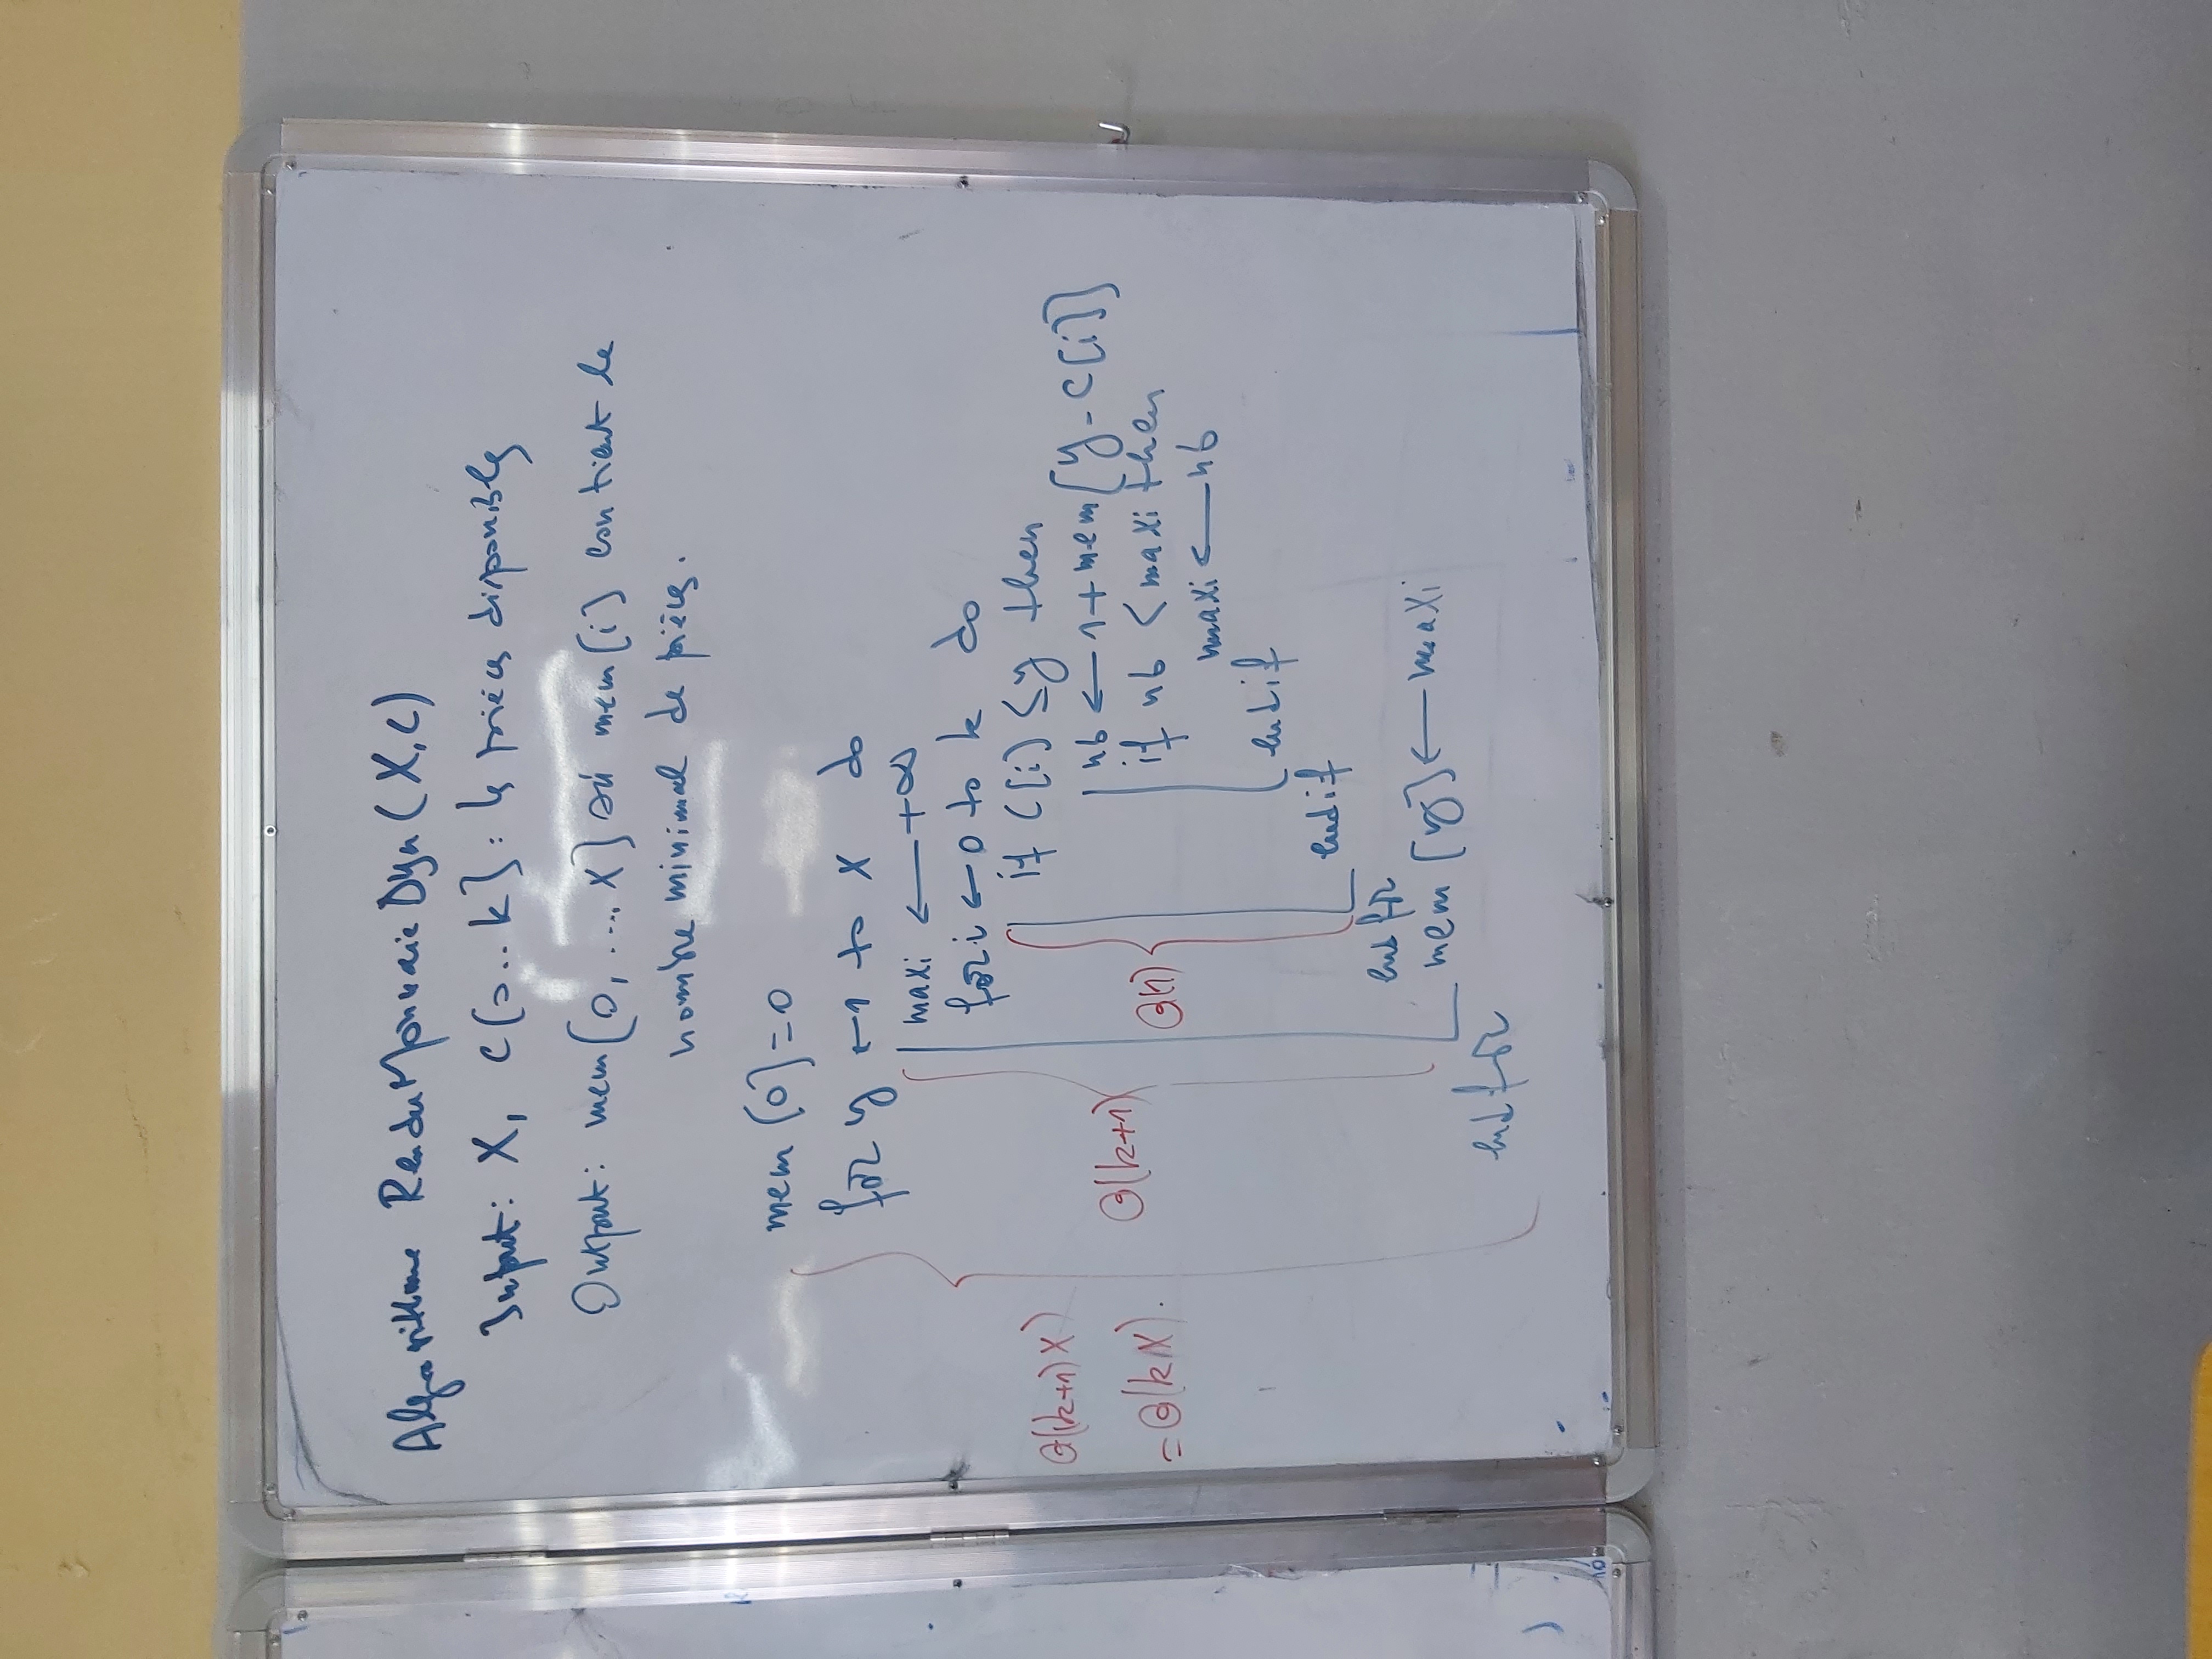 Algorithme RenduMonnaieDyn(X,C)
Input: X, C[0..k]: les pièces disponibles
Output: mem[0, .... X] où mem[i] contient le
nombre minimal de pièces.
mem [0]=0
for y ←1 to X do
maxi ← +∞
for i ← 0 to k do
if C[i] ≤ y then
nb ← 1+mem[y-C[i]]
if nb < maxi then
maxi ← nb
endif
endif
endfor
mem [y] ← maxi
endfor
Θ((k+1)X)
= Θ(kX).
Θ(k+1)
Θ(1)